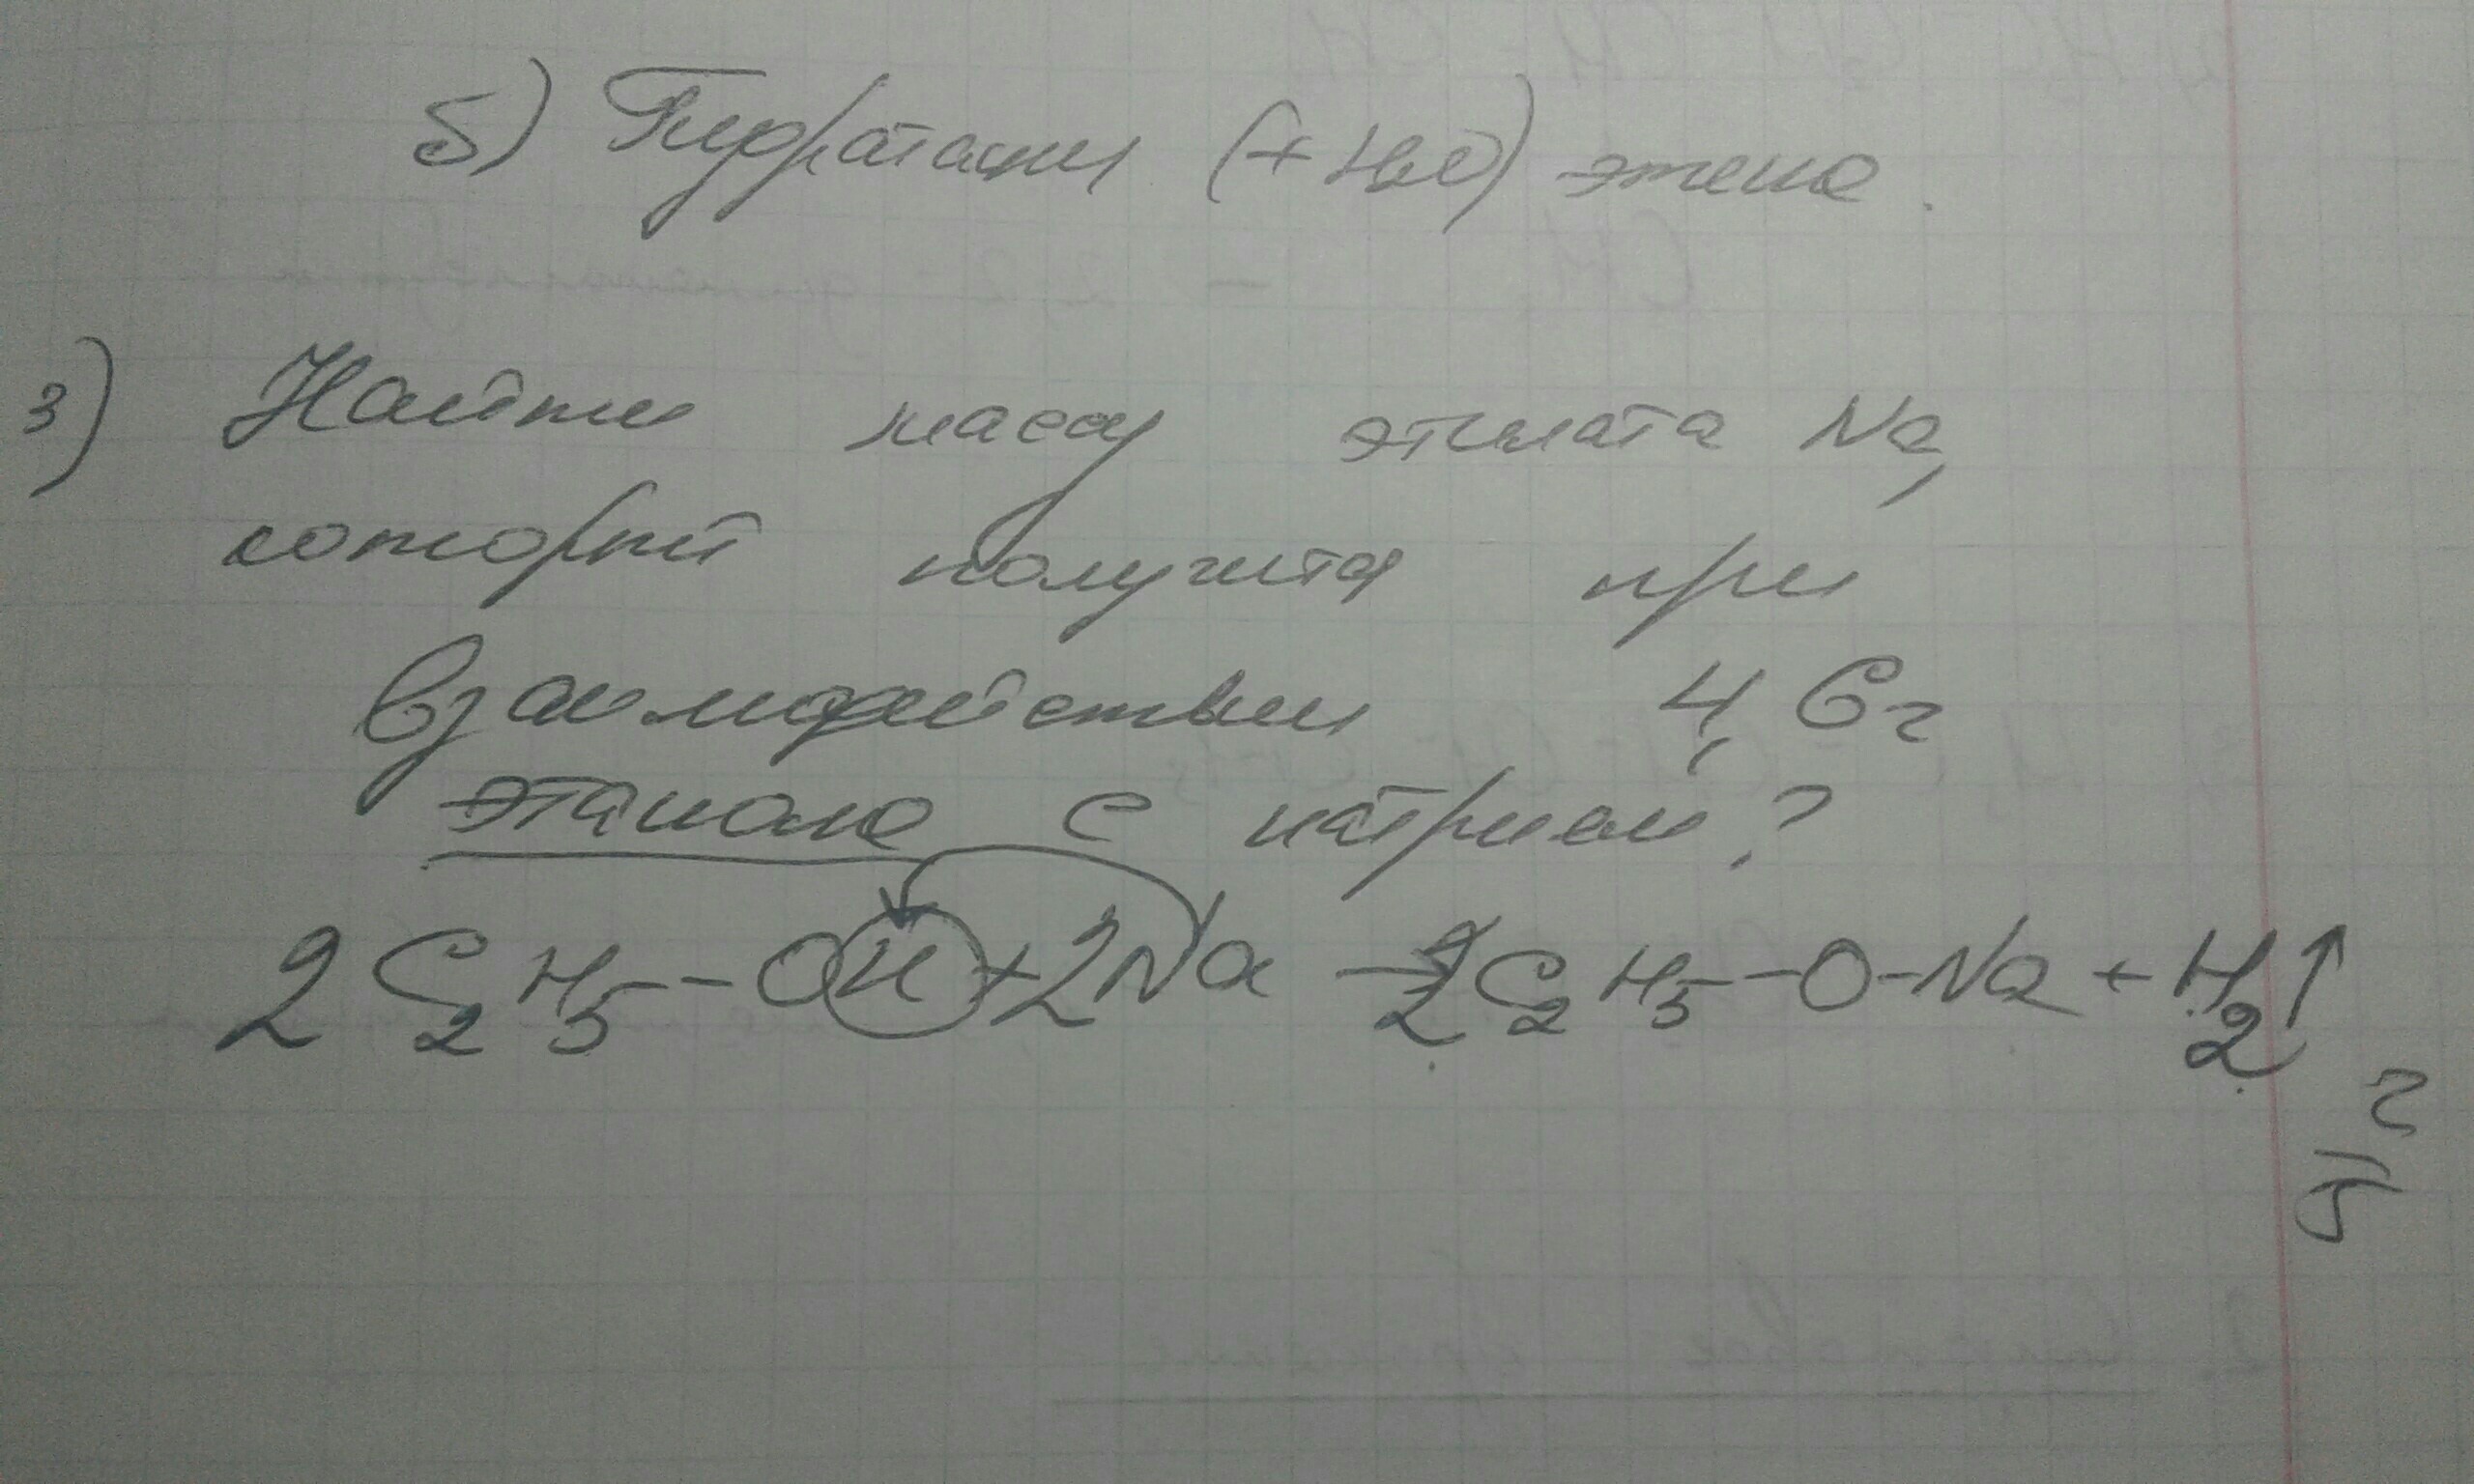 б) Гидратации (+ H2O) этена.
3) Найти массу этилата Na,
который получится при
взаимодействии 4,6г
этанола с натрием?
2C₂H₅-OH+2Na → 2C₂H₅-O-Na + H₂↑